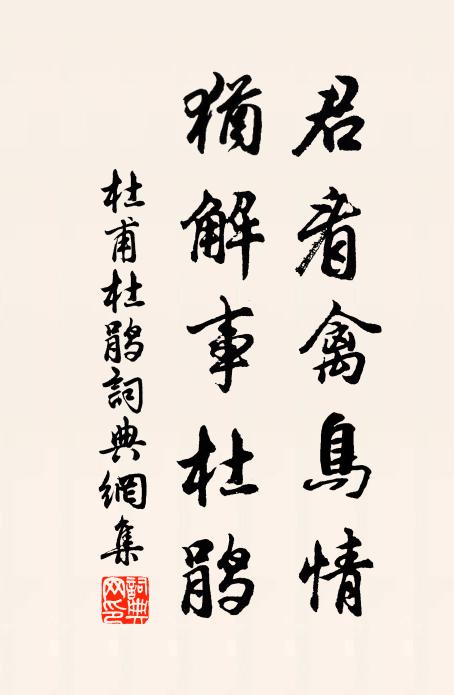 君看禽鳥情
猶解事杜鵑
杜甫杜鵑詞典網集
詞典網印